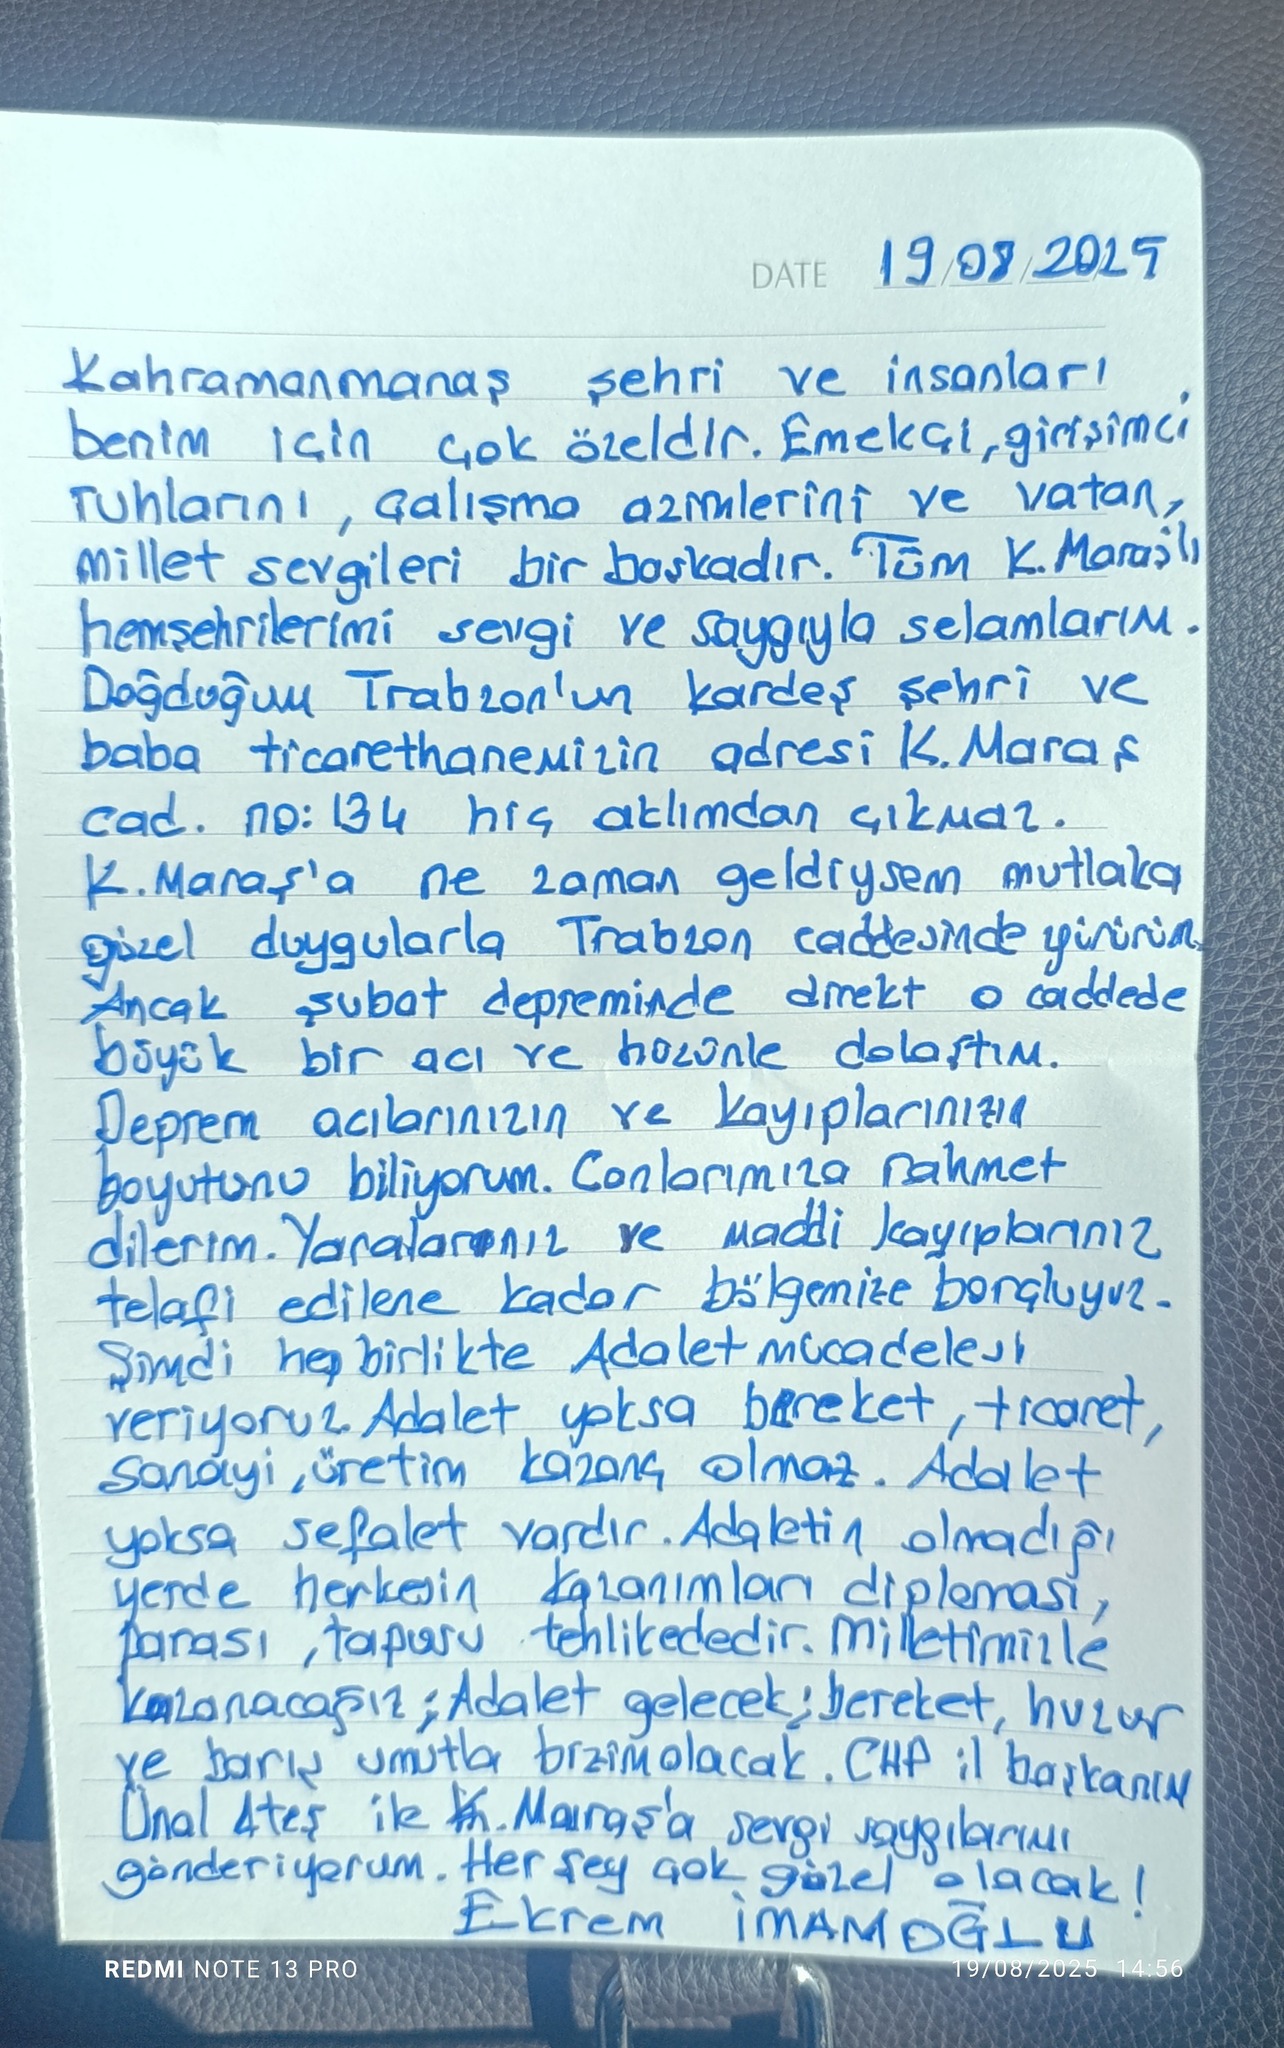 DATE 19/08/2025
Kahramanmaraş şehri ve insanları
benim için çok özeldir. Emekçi, girişimci
ruhlarını, çalışma azimlerini ve vatan,
millet sevgileri bir başkadır. Tüm K.Maraşlı
hemşehrilerimi sevgi ve saygıyla selamlarım.
Doğduğum Trabzon'un kardeş şehri ve
baba ticarethanemizin adresi K.Maraş
cad. no: 134 hiç aklımdan çıkmaz.
K.Maraş'a ne zaman geldiysem mutlaka
güzel duygularla Trabzon caddesinde yürürüm.
Ancak şubat depreminde direkt o caddede
büyük bir acı ve hüzünle dolaştım.
Deprem acılarınızın ve kayıplarınızın
boyutunu biliyorum. Canlarımıza rahmet
dilerim. Yaralarınız ve maddi kayıplarınız
telafi edilene kadar bölgemize borçluyuz.
Şimdi hep birlikte Adalet mücadelesi
veriyoruz. Adalet yoksa bereket, ticaret,
sanayi, üretim kazanç olmaz. Adalet
yoksa sefalet vardır. Adaletin olmadığı
yerde herkesin kazanımları diploması,
parası, tapusu tehlikededir. Milletimizle
kazanacağız; Adalet gelecek; bereket, huzur
ve barış umutla bizim olacak. CHP il başkanım
Ünal Ateş ile K.Maraş'a sevgi saygılarımı
gönderiyorum. Her şey çok güzel olacak!
Ekrem İMAMOĞLU
REDMI NOTE 13 PRO 19/08/2025 14:56